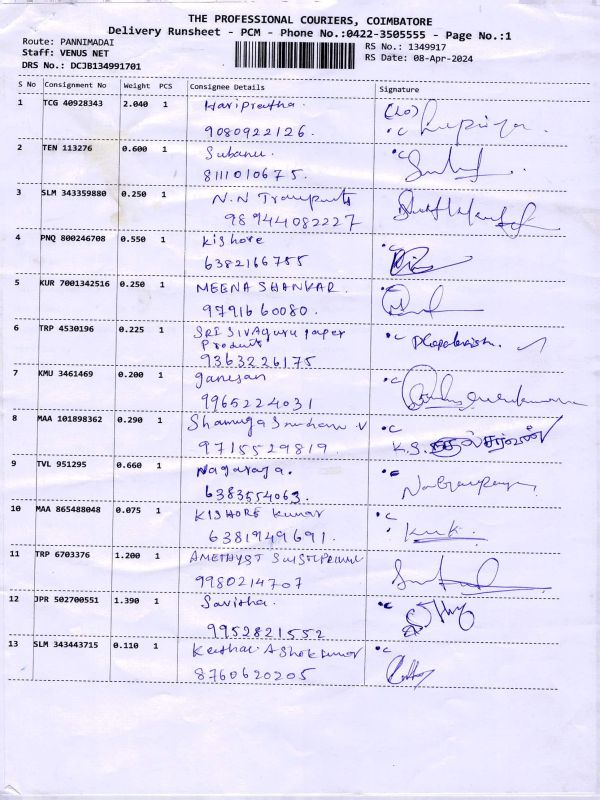 THE PROFESSIONAL COURIERS, COIMBATORE
Delivery Runsheet - PCM - Phone No.:0422-3505555 - Page No.:1
Route: PANNIMADAI
RS No.: 1349917
Staff: VENUS NET
RS Date: 08-Apr-2024
DRS No.: DCJB134991701
S No Consignment No Weight PCS Consignee Details Signature
1 TCG 40928343 2.040 1 Haripreetha
9080922126.
2 TEN 113276 0.600 1 Subanu.
8111010675.
3 SLM 343359880 0.250 1 N.N Transports
98944082227
4 PNQ 800246708 0.550 1 Kishore
6382166755
5 KUR 7001342516 0.250 1 MEENA SHANKAR.
9791660080.
6 TRP 4530196 0.225 1 SRI SIVAguru paper
Products
9363226175
7 KMU 3461469 0.200 1 ganesan
9965224031
8 MAA 101898362 0.290 1 V
9715529819.
9 TVL 951295 0.660 1 Nagaraja.
6383554063.
10 MAA 865488048 0.075 1 KISHORE Kumar
6381949691.
11 TRP 6703376 1.200 1 AMETHYST
9980214707
12 JPR 502700551 1.390 1 Savitha.
9952821552
13 SLM 343443715 0.110 1 Ashok Kumar
8760620205